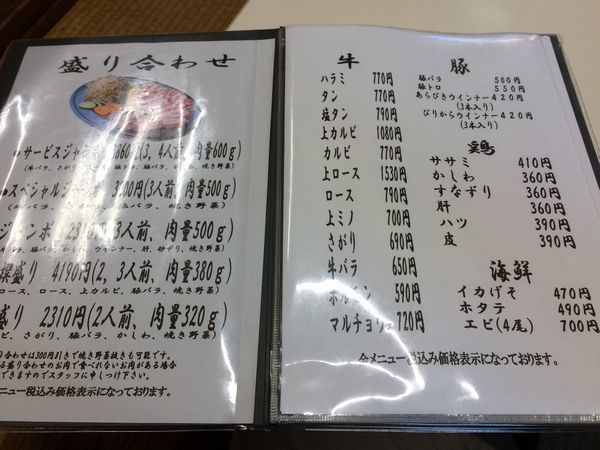 盛り合わせ
●サービスジャンボ 860円(3,4人前、肉量600g)
豚バラ、かしわ、焼き野菜)
●スペシャルジャンボ 3200円(3人前、肉量500g)
焼き野菜)
ジャンボ 2310円(3人前、肉量500g)
豚バラ、かしわ、ウインナー、肝、砂ずり、焼き野菜)
盛り 4190円(2,3人前、肉量380g)
ロース、ロース、上カルビ、豚バラ、焼き野菜)
盛り 2310円(2人前、肉量320g)
ビ、さがり、豚バラ、かしわ、焼き野菜)
り合わせは300円引きで焼き野菜抜きも可能です。
る盛り合わせのお肉で食べれないお肉がある場合
できますのでスタッフに申しつけ下さい。
メニュー税込み価格表示になっております。
牛
ハラミ 770円
タン 770円
塩タン 790円
上カルビ 1080円
カルビ 770円
上ロース 1530円
ロース 790円
上ミノ 700円
さがり 690円
牛バラ 650円
ホルモン 590円
マルチョウ 720円
豚
豚バラ 500円
豚トロ 550円
あらびきウインナー 420円
(3本入り)
ぴりからウインナー 420円
(3本入り)
鶏
ササミ 410円
かしわ 360円
すなずり 360円
肝 360円
ハツ 390円
皮 390円
海鮮
イカげそ 470円
ホタテ 490円
エビ(4尾) 700円
全メニュー税込み価格表示になっております。